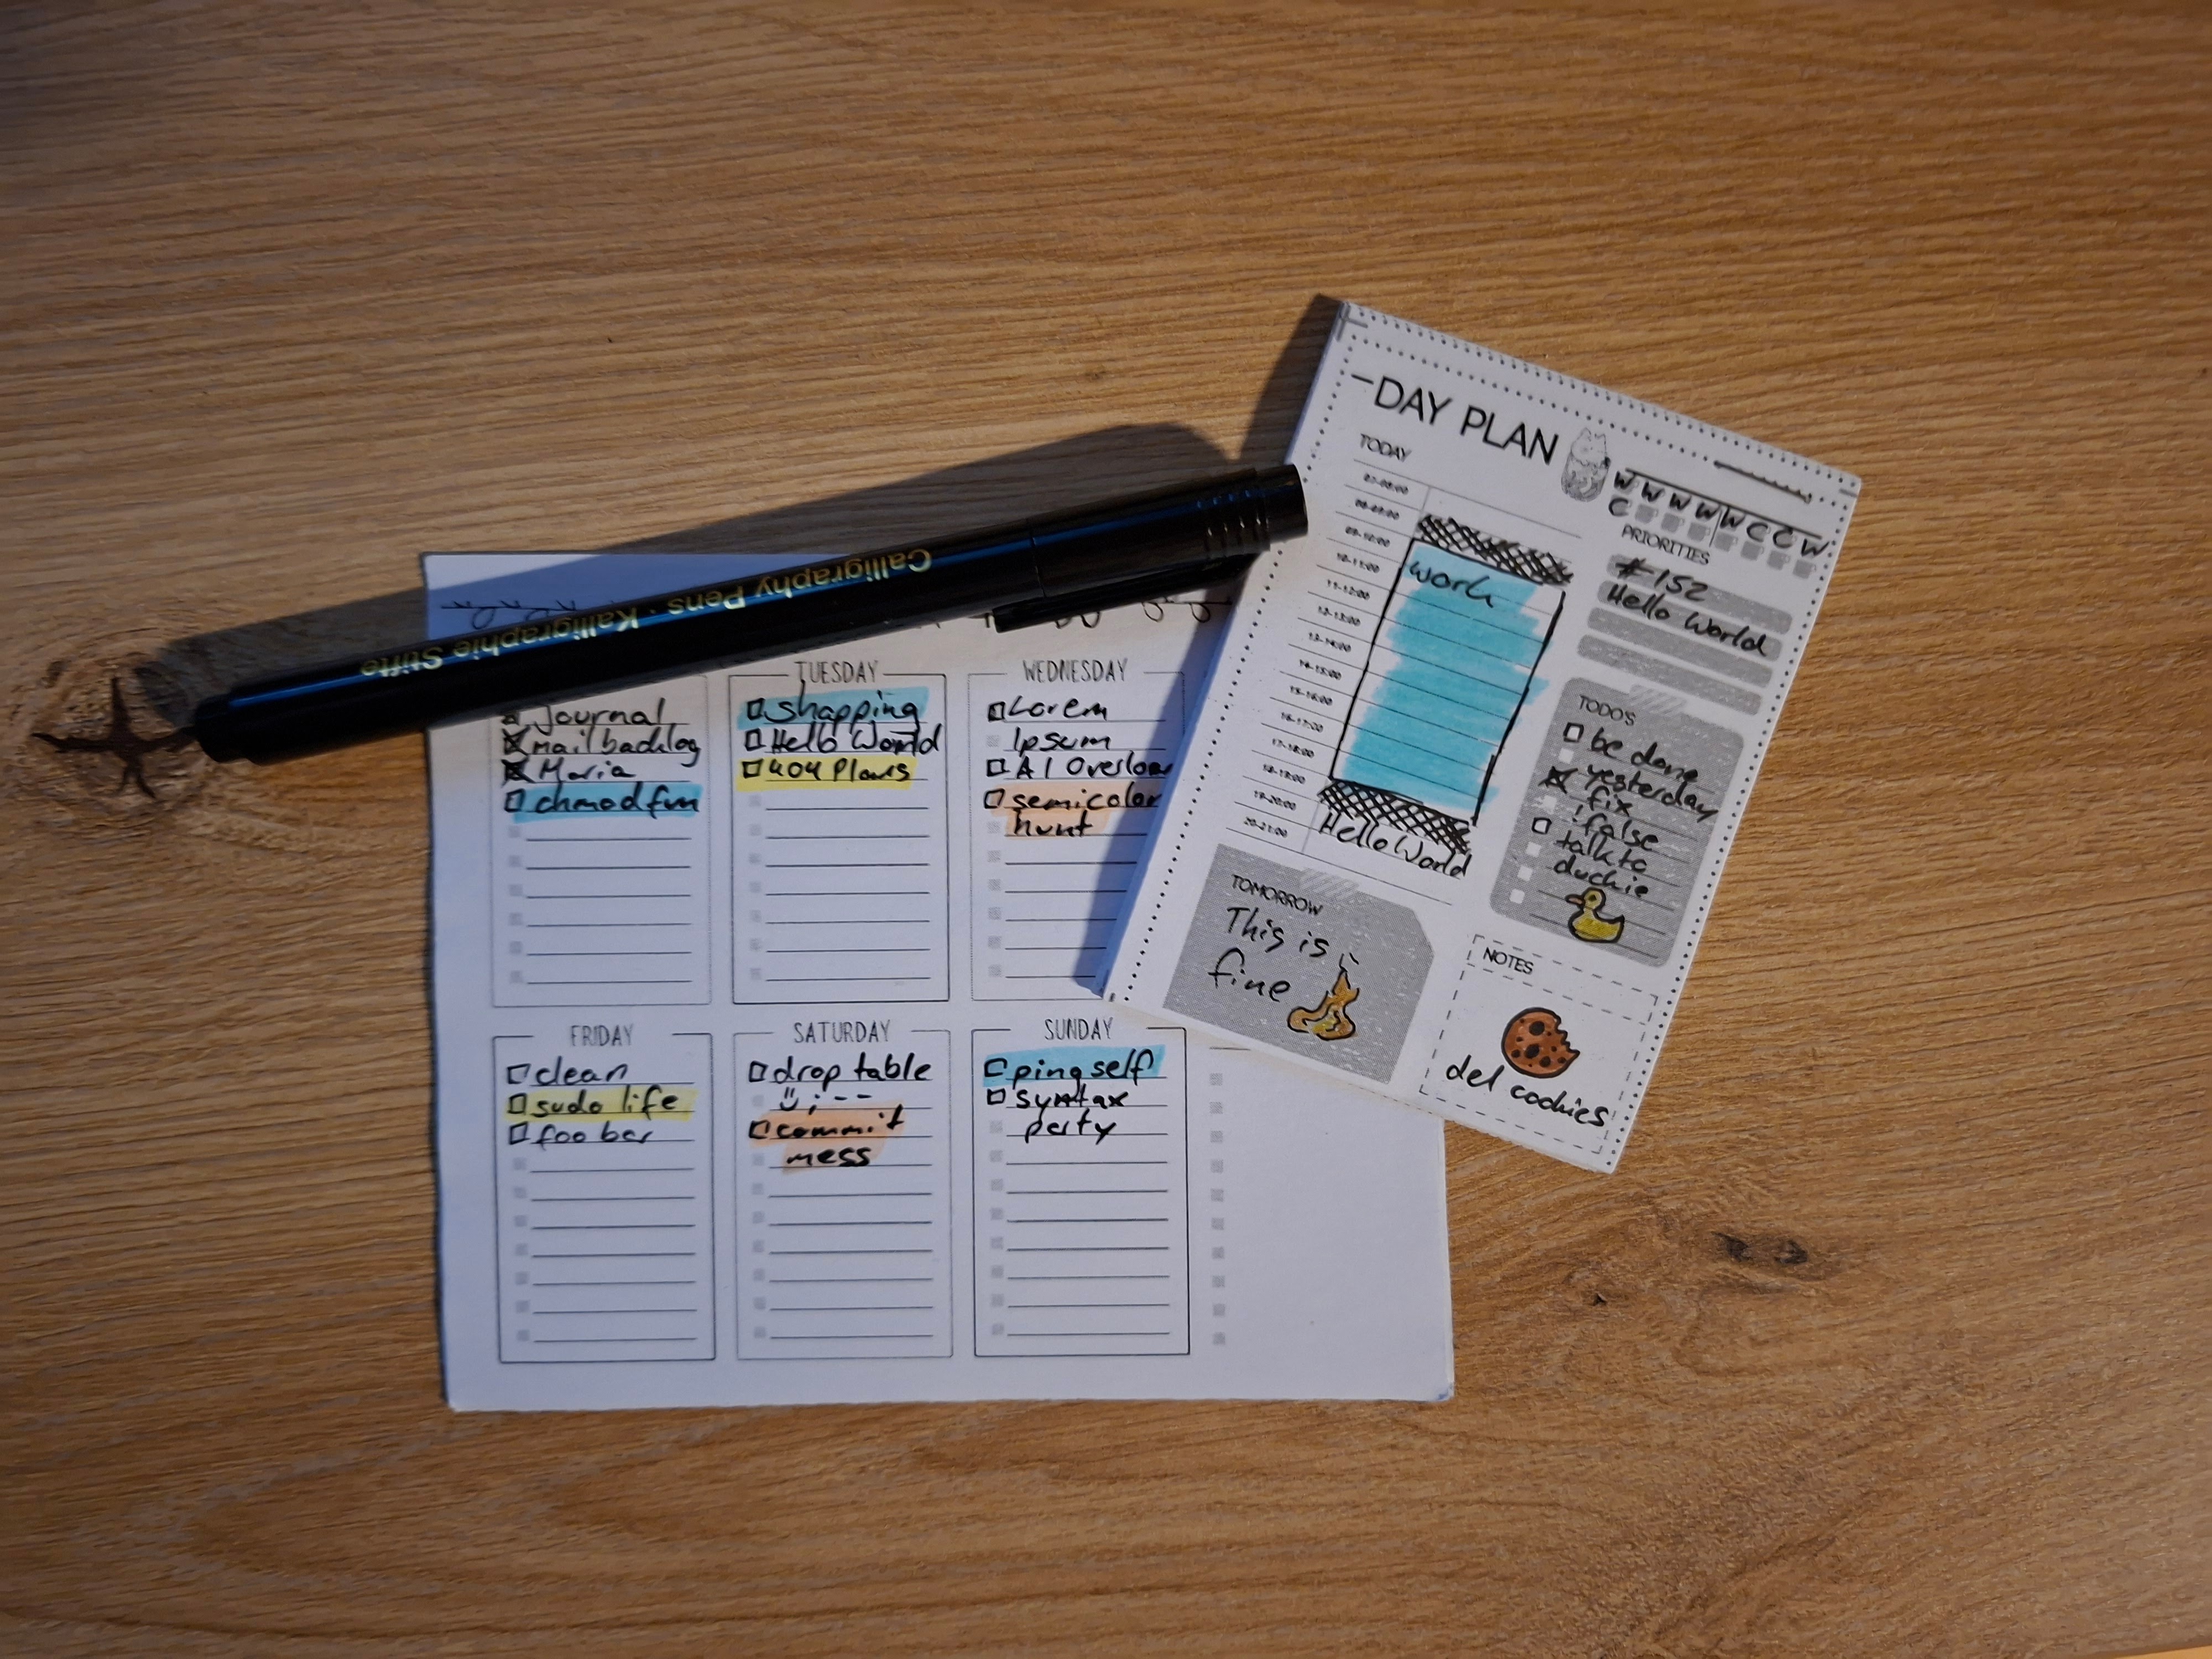 Calligraphy Pens · Kalligraphie Stifte
TUESDAY
WEDNESDAY
Journal
mail backlog
Maria
chmod fun
shopping
Hello World
404 Plans
Lorem
Ipsum
AI
semicolon
hunt
FRIDAY
clean
sudo life
foo bar
SATURDAY
drop table
;--
commit
mess
SUNDAY
ping self
syntax
party
DAY PLAN
TODAY
07-08:00
08-09:00
09-10:00
10-11:00
11-12:00
12-13:00
13-14:00
14-15:00
15-16:00
16-17:00
17-18:00
18-19:00
19-20:00
20-21:00
work
Hello World
W W W W W C C W
C
PRIORITIES
#152
Hello World
TODO'S
be done
yesterday
fix
!false
talk to
duckie
TOMORROW
This is
fine
NOTES
del cookies